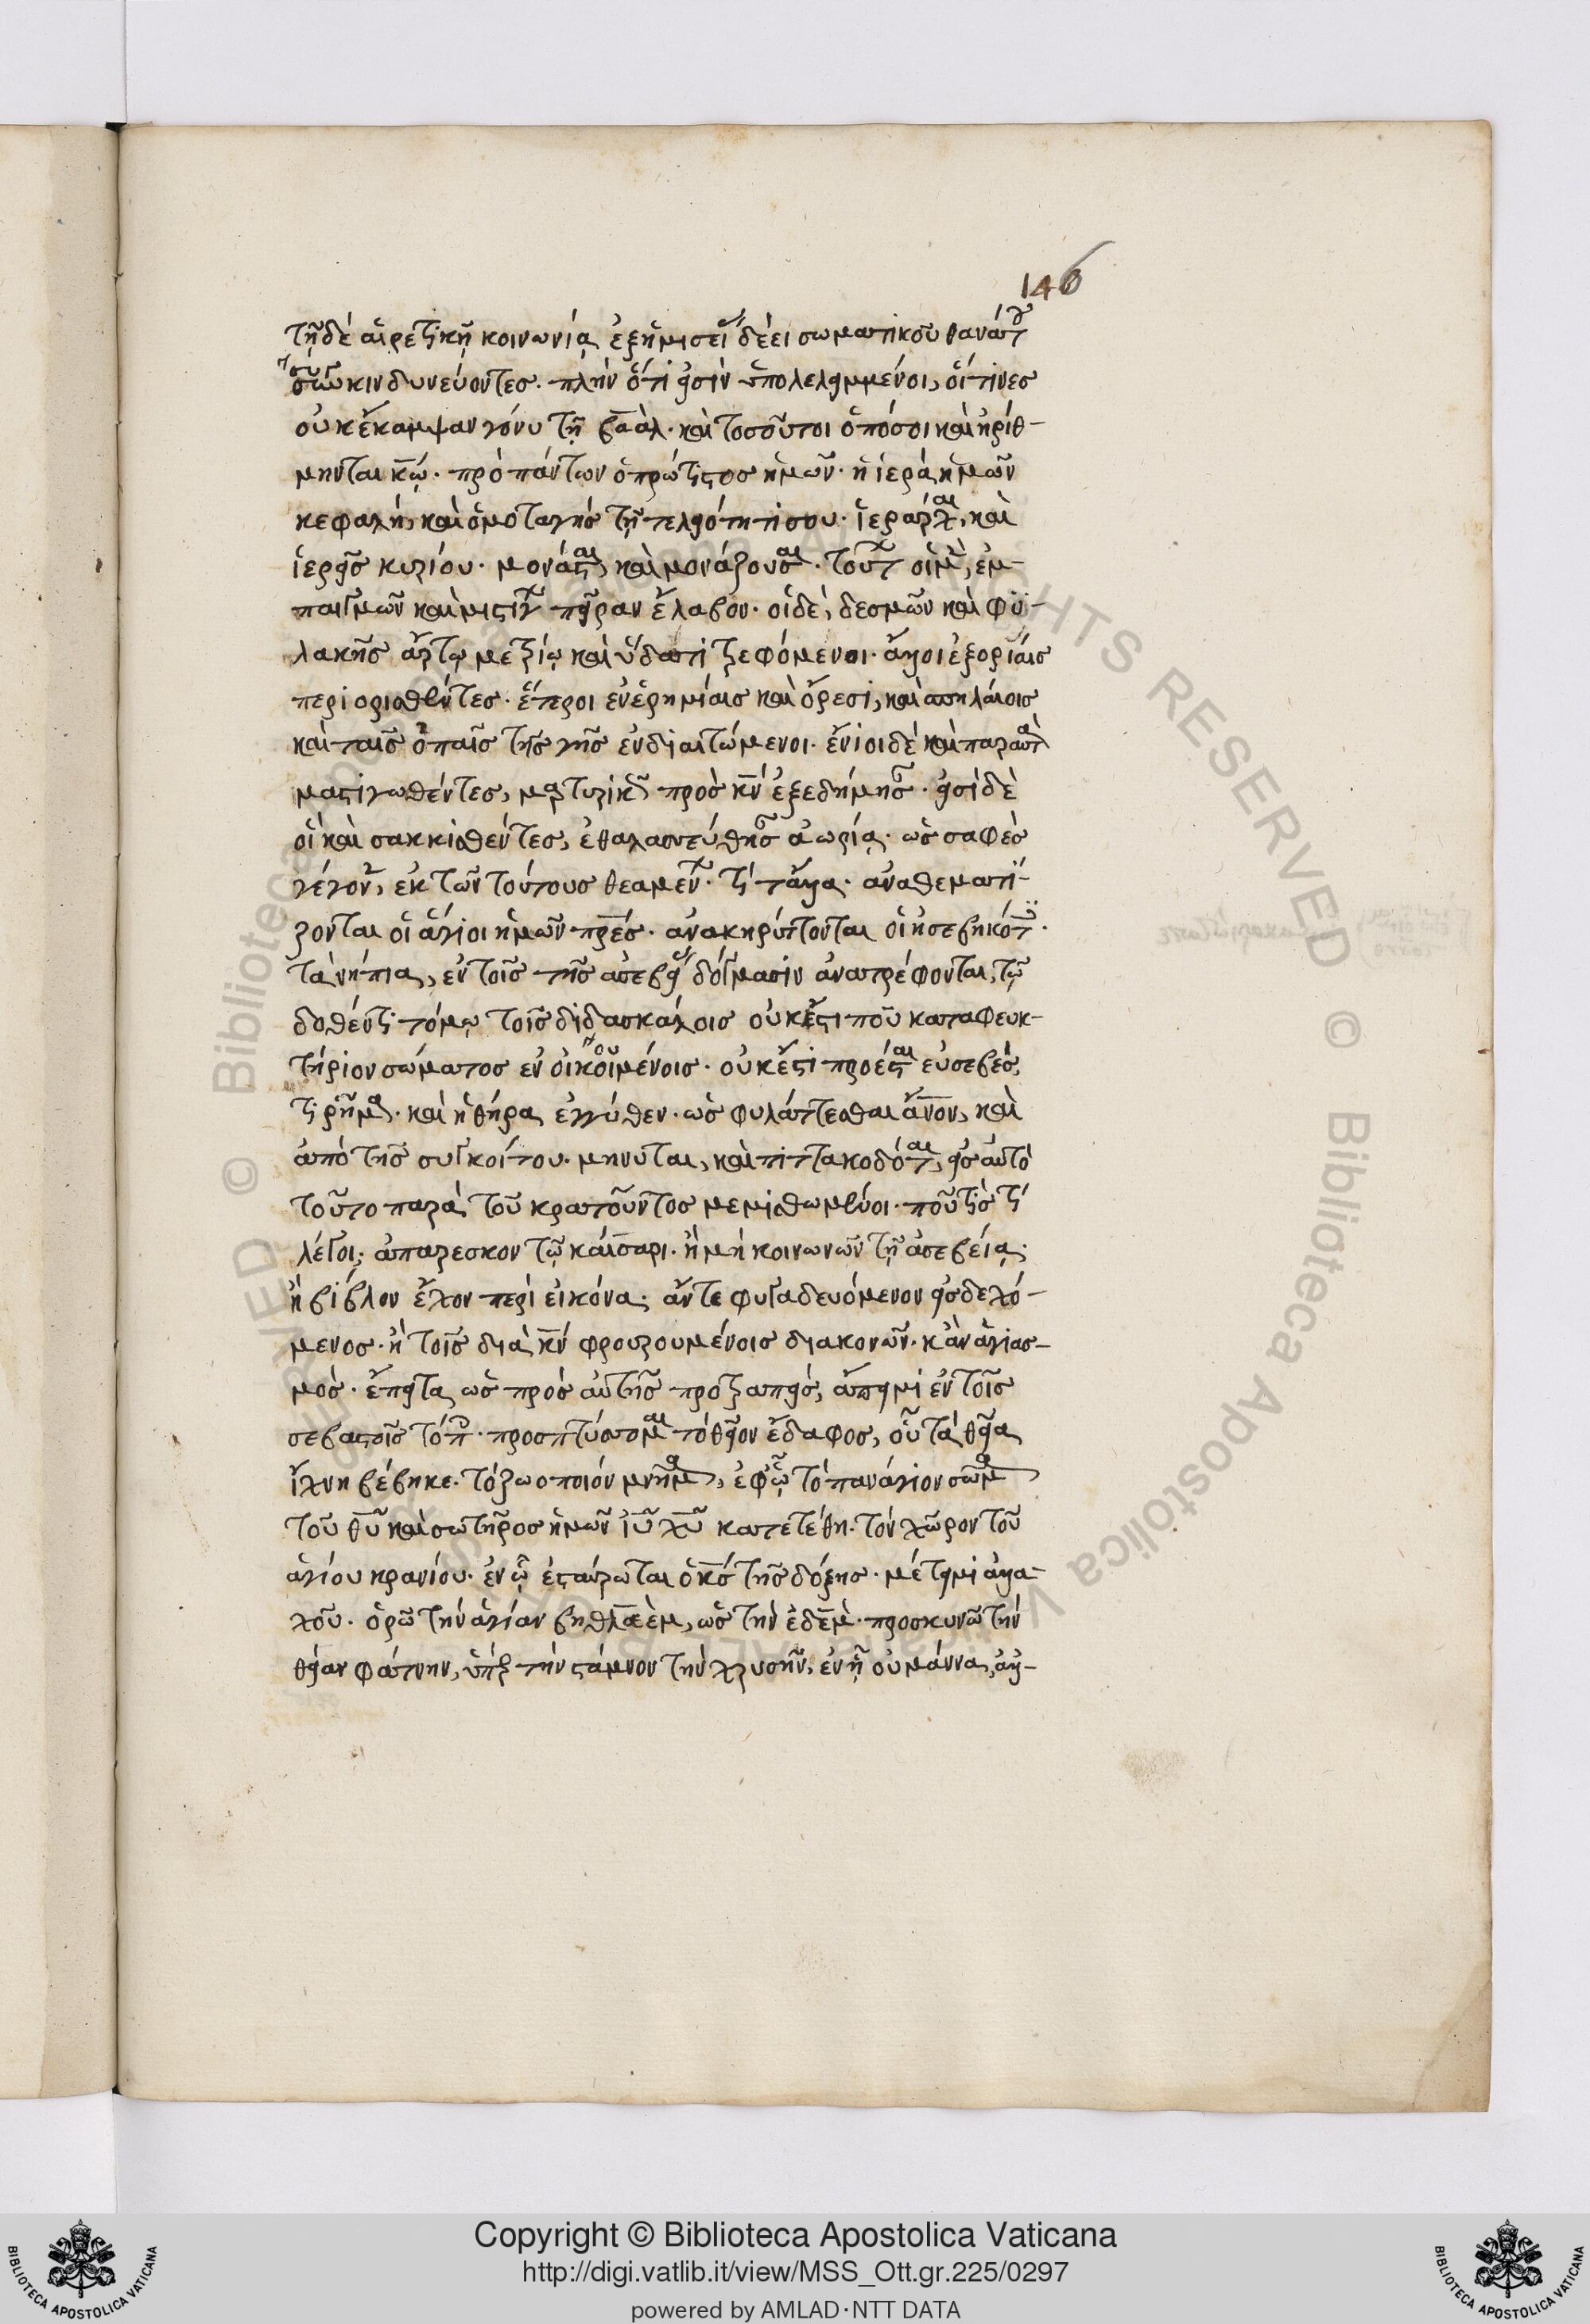 146
τῇ δὲ αἱρετικῇ κοινωνίᾳ ἐξ ἡμισείας δέει σωματικοῦ θανάτου
συγκινδυνεύοντες· πλὴν ὅτι εἰσὶν ὑπολελειμμένοι, οἵτινες
οὐκ ἔκαμψαν γόνυ τῇ βάαλ· καὶ τοσοῦτοι ὁπόσοι καὶ ἠρίθ-
μηνται κῷ· πρὸ πάντων ὁ πρώτιστος ἡμῶν· ἡ ἱερὰ ἡμῶν
κεφαλή, καὶ ὁμοταγὴς τῇ τελειότητί σου· ἱεράρχαι, καὶ
ἱερεῖς κυρίου· μονάσται, καὶ μονάζουσαι· τούτων οἱ μὲν, ἐμ-
παιγμῶν καὶ μαστίγων πεῖραν ἔλαβον· οἱ δὲ, δεσμῶν καὶ φυ-
λακῆς ἄρτῳ μετρίῳ καὶ ὕδατι τρεφόμενοι· ἄλλοι ἐξορίαις
περιορισθέντες· ἕτεροι ἐν ἐρημίαις καὶ ὄρεσι, καὶ σπηλαίοις
καὶ ταῖς ὀπαῖς τῆς γῆς ἐνδιαιτώμενοι· ἔνιοι δὲ καὶ παραυτὰ
μαστιγωθέντες, μαρτυρικῶς πρὸς κν ἐξεδήμησαν· εἰσὶ δὲ
οἳ καὶ σακκισθέντες, ἐθαλασσεύθησαν ἀωρίᾳ· ὡς σαφὲς
γέγονεν, ἐκ τῶν τούτους θεαμένων· τί τἄλλα· ἀναθεματί-
ζονται οἱ ἅγιοι ἡμῶν πρες· ἀνακηρύττονται οἱ ἠσεβηκότες·
τὰ νήπια, ἐν τοῖς τῆς ἀσεβείας δόγμασιν ἀνατρέφονται, τῷ
δοθέντι τόμῳ τοῖς διδασκάλοις οὐκ ἔστι ποῦ καταφευκ-
τήριον σώματος ἐν οἰκουμένοις· οὐκ ἔστι προέσται εὐσεβές,
τι ῥῆμα· καὶ ἡ θήρα ἐγγύθεν· ὡς φυλάττεσθαι ἄνον, καὶ
ἀπὸ τῆς συγκοίτου· μηνυταὶ, καὶ πιττακοδόται, εἰς αὐτὸ
τοῦτο παρὰ τοῦ κρατοῦντος μεμισθωμένοι· ποῦ τίς τί
λέγοι; ἀπαρέσκον τῷ καίσαρι· ἢ μὴ κοινωνῶν τῇ ἀσεβείᾳ;
ἢ βίβλον ἔχον περὶ εἰκόνα; ἄντε φυγαδευόμενον εἰσδεχό-
μενος· ἢ τοῖς διὰ κν φρουρουμένοις διακονῶν· κἂν ἁγιασ-
μὸς· ἔπειτα ὡς πρὸς αὐτῆς προτραπεὶς, ἄπειμι ἐν τοῖς
σεβαστοῖς τόποις· προσπτύσσομαι τὸ θεῖον ἔδαφος, οὗ τὰ θεῖα
ἴχνη βέβηκε· τὸ ζωοποιὸν μνῆμα, ἐφ' ᾧ τὸ πανάγιον σῶμα
τοῦ θυ καὶ σωτῆρος ἡμῶν ιυ χυ κατετέθη· τὸν χῶρον τοῦ
ἁγίου κρανίου· ἐν ᾧ ἐσταύρωται ὁ κς τῆς δόξης· μέτειμι ἀλλα-
χοῦ· ὁρῶ τὴν ἁγίαν βηθλεὲμ, ὡς τὴν ἐδὲμ· προσκυνῶ τὴν
θείαν φάτνην, ὑπὲρ τὴν στάμνον τὴν χρυσῆν, ἐν ᾗ οὐ μάννα, ἀλλ-
Copyright © Biblioteca Apostolica Vaticana
http://digi.vatlib.it/view/MSS_Ott.gr.225/0297
powered by AMLAD·NTT DATA